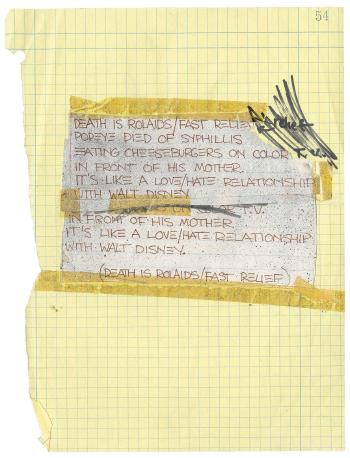 54
DEATH IS ROLAIDS/FAST RELIEF
POPEYE DIED OF SYPHILLIS
EATING CHEESEBURGERS ON COLOR
IN FRONT OF HIS MOTHER.
IT'S LIKE A LOVE/HATE RELATIONSHIP
WITH WALT DISNEY
T.V.
IN FRONT OF HIS MOTHER.
IT'S LIKE A LOVE/HATE RELATIONSHIP
WITH WALT DISNEY.
(DEATH IS ROLAIDS/FAST RELIEF)